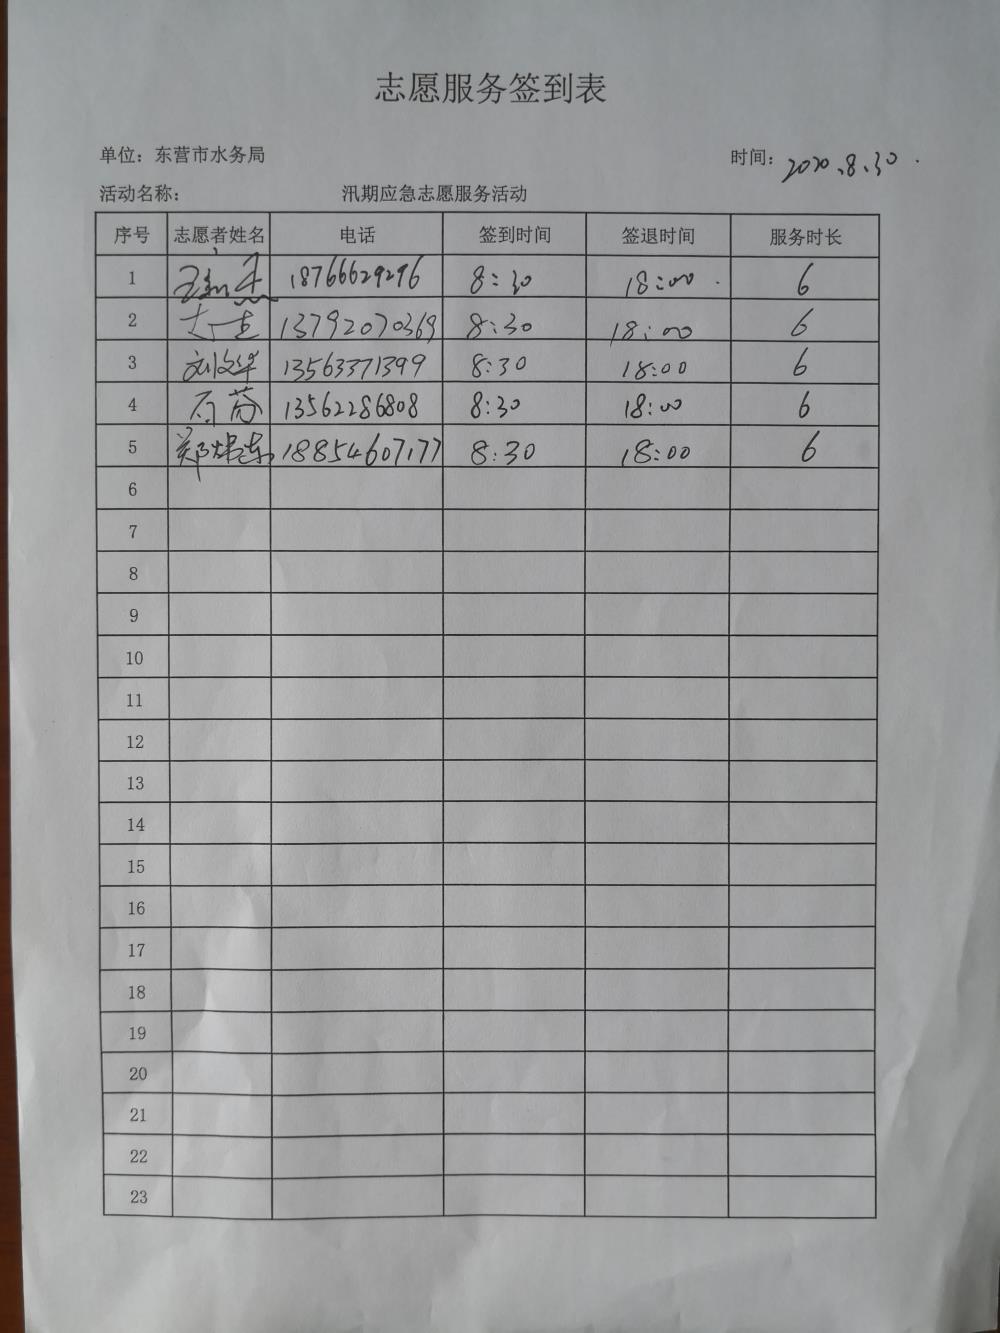 志愿服务签到表
单位：东营市水务局 时间：2020.8.30.
活动名称： 汛期应急志愿服务活动
序号 志愿者姓名 电话 签到时间 签退时间 服务时长
1 18766629296 8:30 18:00 6
2 13792070369 8:30 18:00 6
3 刘文华 13563371399 8:30 18:00 6
4 石芬 13562286808 8:30 18:00 6
5 18854607177 8:30 18:00 6
6
7
8
9
10
11
12
13
14
15
16
17
18
19
20
21
22
23